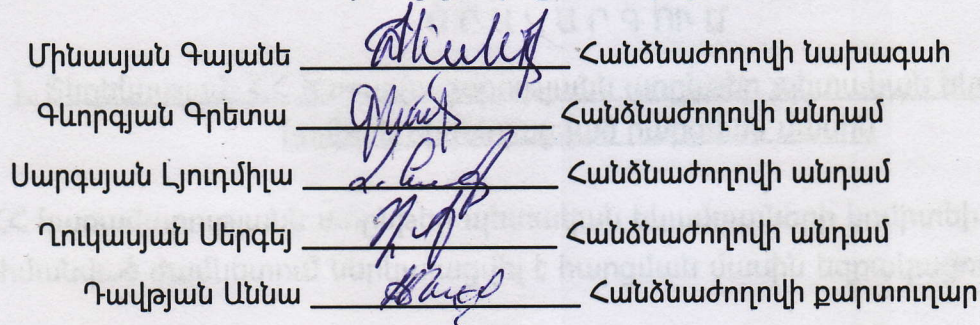 Մինասյան Գայանե Հանձնաժողովի նախագահ
Գևորգյան Գրետա Հանձնաժողովի անդամ
Սարգսյան Լյուդմիլա Հանձնաժողովի անդամ
Ղուկասյան Սերգեյ Հանձնաժողովի անդամ
Դավթյան Աննա Հանձնաժողովի քարտուղար